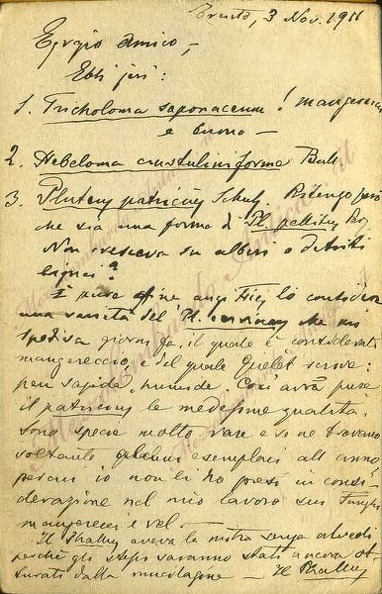 Trento, 3 Nov. 1911
Egregio Amico,
Ebbi jeri:
1. Tricholoma saponaceum!
e buono —
2. Hebeloma crustuliniforme Bull
3. Pluteus patricius Schulz. Ritengo però
che sia una forma di Pl. pellitus Per.
Non cresceva su alberi o detriti
lignei?
È pure affine anzi Fries lo considera
una varietà del Pl. cervinus che mi
spediva giorni fa, il quale è considerato
mangereccio e del quale Quélet scrive:
peu sapide, humide. Così avrà pure
il patricius le medesime qualità.
Sono specie molto rare e se ne trovano
soltanto alcuni esemplari all'anno
perciò io non li ho presi in consi-
derazione nel mio lavoro sui Funghi
mangerecci e vel.
Il Phallus aveva la mitra senza alveoli
perchè gli stessi saranno stati ancora ot-
turati dalla mucilagine — Il Phallus